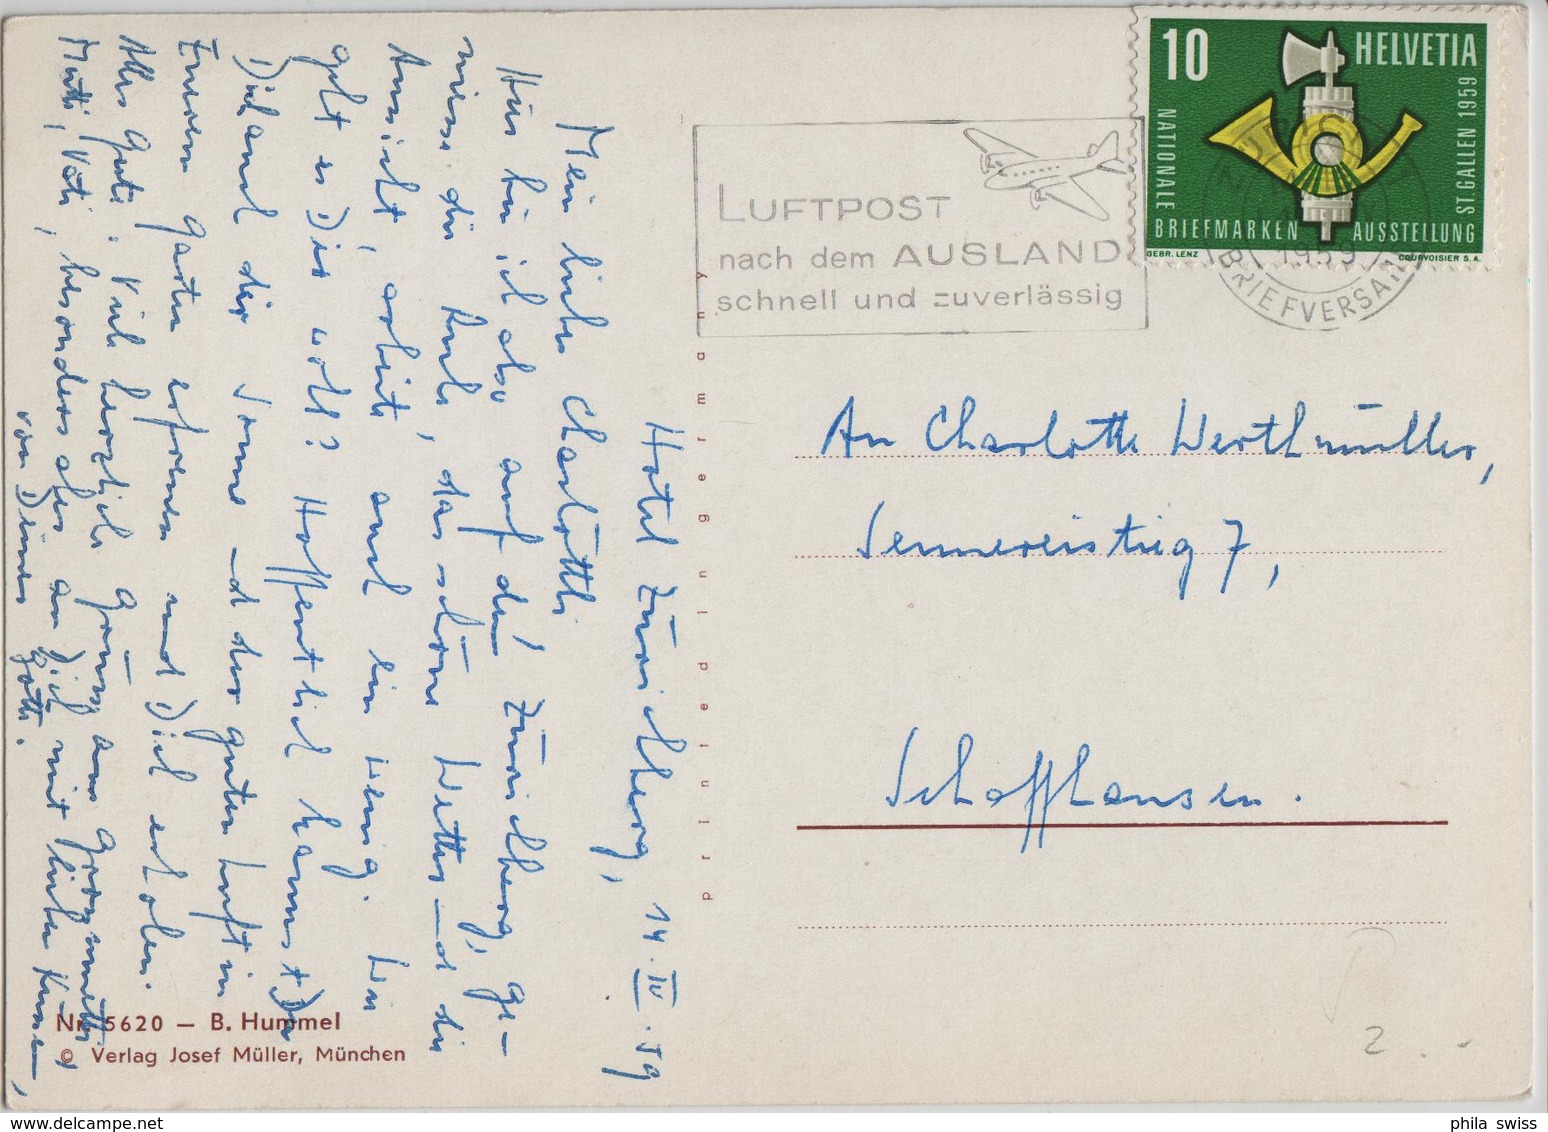 Hotel Zürichberg, 14. IV. 59
Mein liebes Charlöttli
Nun bin ich also auf dem Zürichberg, ge-
niesse die Ruhe, das schöne Wetter – d die
Aussicht, arbeite auch ein wenig. Wie
geht es Dir wohl? Hoffentlich kannst Du
Dich and der Sonne – d der guten Luft in
Eurem Garten erfreuen und Dich erholen.
Alles Gute. Viele herzliche Grüsse am Grossmutti,
Mutti, Vati, besonders aber an Dich mit lieben Küssen,
von Deiner Gotte.
Nr. 5620 — B. Hummel
© Verlag Josef Müller, München
printed in germany
LUFTPOST
nach dem AUSLAND
schnell und zuverlässig
10 HELVETIA
NATIONALE
BRIEFMARKEN AUSSTELLUNG
ST. GALLEN 1959
GEBR. LENZ COURVOISIER S.A.
1959
BRIEFVERSAND
An Charlotte Werthmüller,
Sennereisteig 7,
Schaffhausen.
2.-
phila swiss